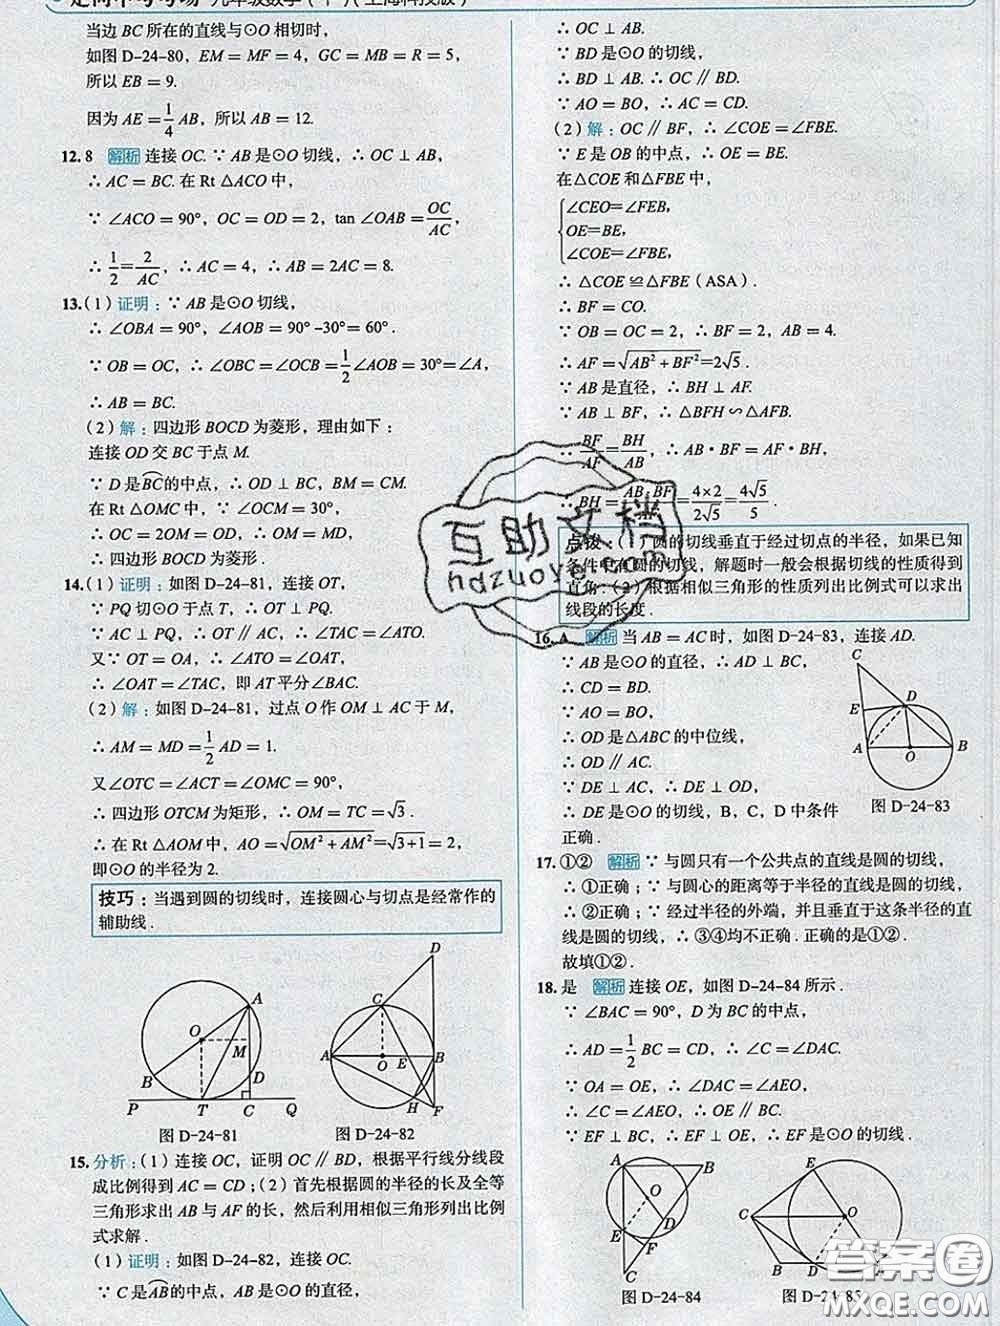 走向中考考场 九年级数学（下）（上海科技版）
当边 BC 所在的直线与⊙O 相切时，
如图 D-24-80，EM = MF = 4，GC = MB = R = 5，
所以 EB = 9.
因为 AE = 1/4 AB，所以 AB = 12.
12. 8 解析 连接 OC. ∵ AB 是⊙O 切线，∴ OC ⊥ AB，
∴ AC = BC. 在 Rt △ACO 中，
∵ ∠ACO = 90°，OC = OD = 2，tan ∠OAB = OC/AC，
∴ 1/2 = 2/AC，∴ AC = 4，∴ AB = 2AC = 8.
13. (1) 证明：∵ AB 是⊙O 切线，
∴ ∠OBA = 90°，∠AOB = 90° -30°= 60° .
∵ OB = OC，∴ ∠OBC = ∠OCB = 1/2 ∠AOB = 30°= ∠A，
∴ AB = BC.
(2) 解：四边形 BOCD 为菱形，理由如下：
连接 OD 交 BC 于点 M.
∵ D 是⌒BC的中点，∴ OD ⊥ BC，BM = CM.
在 Rt △OMC 中，∵ ∠OCM = 30°，
∴ OC = 2OM = OD，∴ OM = MD，
∴ 四边形 BOCD 为菱形 .
14. (1) 证明：如图 D-24-81，连接 OT，
∵ PQ 切⊙O 于点 T，∴ OT ⊥ PQ.
∵ AC ⊥ PQ，∴ OT∥AC，∴ ∠TAC = ∠ATO.
又∵ OT = OA，∴ ∠ATO = ∠OAT，
∴ ∠OAT = ∠TAC，即 AT 平分∠BAC.
(2) 解：如图 D-24-81，过点 O 作 OM ⊥ AC 于 M，
∴ AM = MD = 1/2 AD = 1.
又∠OTC = ∠ACT = ∠OMC = 90°，
∴ 四边形 OTCM 为矩形，∴ OM = TC = √3 .
∴ 在 Rt △AOM 中，AO = √(OM² + AM²) = √(3+1) = 2，
即⊙O 的半径为 2.
技巧：当遇到圆的切线时，连接圆心与切点是经常作的
辅助线 .
O A M B D P T C Q
图 D-24-81
D C A O E B H F
图 D-24-82
15. 分析：(1) 连接 OC，证明 OC∥BD，根据平行线分线段
成比例得到 AC = CD；(2) 首先根据圆的半径的长及全等
三角形求出 AB 与 AF 的长，然后利用相似三角形列出比例
式求解 .
(1) 证明：如图 D-24-82，连接 OC.
∵ C 是⌒AB的中点，AB 是⊙O 的直径，
∴ OC ⊥ AB.
∵ BD 是⊙O 的切线，
∴ BD ⊥ AB，∴ OC∥BD.
∵ AO = BO，∴ AC = CD.
(2) 解：OC∥BF，∴ ∠COE = ∠FBE.
∵ E 是 OB 的中点，∴ OE = BE.
在△COE 和△FBE 中，
∠CEO= ∠FEB，
OE= BE，
∠COE = ∠FBE，
∴ △COE ≌△FBE (ASA) .
∴ BF = CO.
∵ OB = OC = 2，∴ BF = 2，AB = 4.
∴ AF = √(AB² + BF²) = 2√5 .
∵ AB 是直径，∴ BH ⊥ AF.
∵ AB ⊥ BF，∴ △BFH ∽ △AFB.
∴ BF/AF = BH/AB，∴ AB • BF = AF • BH，
∴ BH = AB•BF/AF = 4×2/2√5 = 4√5/5 .
点拨：(1) 圆的切线垂直于经过切点的半径，如果已知
条件中有圆的切线，解题时一般会根据切线的性质得到
直角；(2) 根据相似三角形的性质列出比例式可以求出
线段的长度 .
16. A 解析 当 AB = AC 时，如图 D-24-83，连接 AD.
∵ AB 是⊙O 的直径，∴ AD ⊥ BC，
∴ CD = BD.
∵ AO = BO，
∴ OD 是△ABC 的中位线，
∴ OD∥AC.
∵ DE ⊥ AC，∴ DE ⊥ OD，
∴ DE 是⊙O 的切线，B、C、D 中条件
正确 .
C E D A O B
图 D-24-83
17. ①② 解析 ∵ 与圆只有一个公共点的直线是圆的切线，
∴ ①正确；∵ 与圆心的距离等于半径的直线是圆的切线，
∴ ②正确；∵ 经过半径的外端，并且垂直于这条半径的直
线是圆的切线，∴ ③④均不正确 . 正确的是①② .
故填①② .
18. 是 解析 连接 OE，如图 D-24-84 所示 .
∵ ∠BAC = 90°，D 为 BC 的中点，
∴ AD = 1/2 BC = CD，∴ ∠C = ∠DAC.
∵ OA = OE，∴ ∠DAC = ∠AEO，
∴ ∠C = ∠AEO，∴ OE∥BC.
∵ EF ⊥ BC，∴ EF ⊥ OE，∴ EF 是⊙O 的切线 .
A B O D E F C
图 D-24-84
E C O D
图 D-24-85
互助文档
hdzuoye.com
答案圈
MXQE.COM